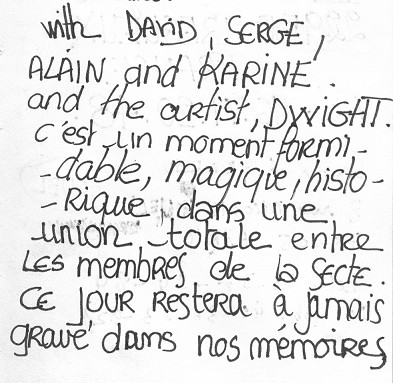 with DAVID, SERGE,
ALAIN and KARINE.
and the artist, DWIGHT.
c'est un moment formi-
-dable, magique, histo-
-Rique, dans une
union totale entre
LES membres de la SECTE.
CE JOUR RESTERA à jamais
gravé dans nos mémoires